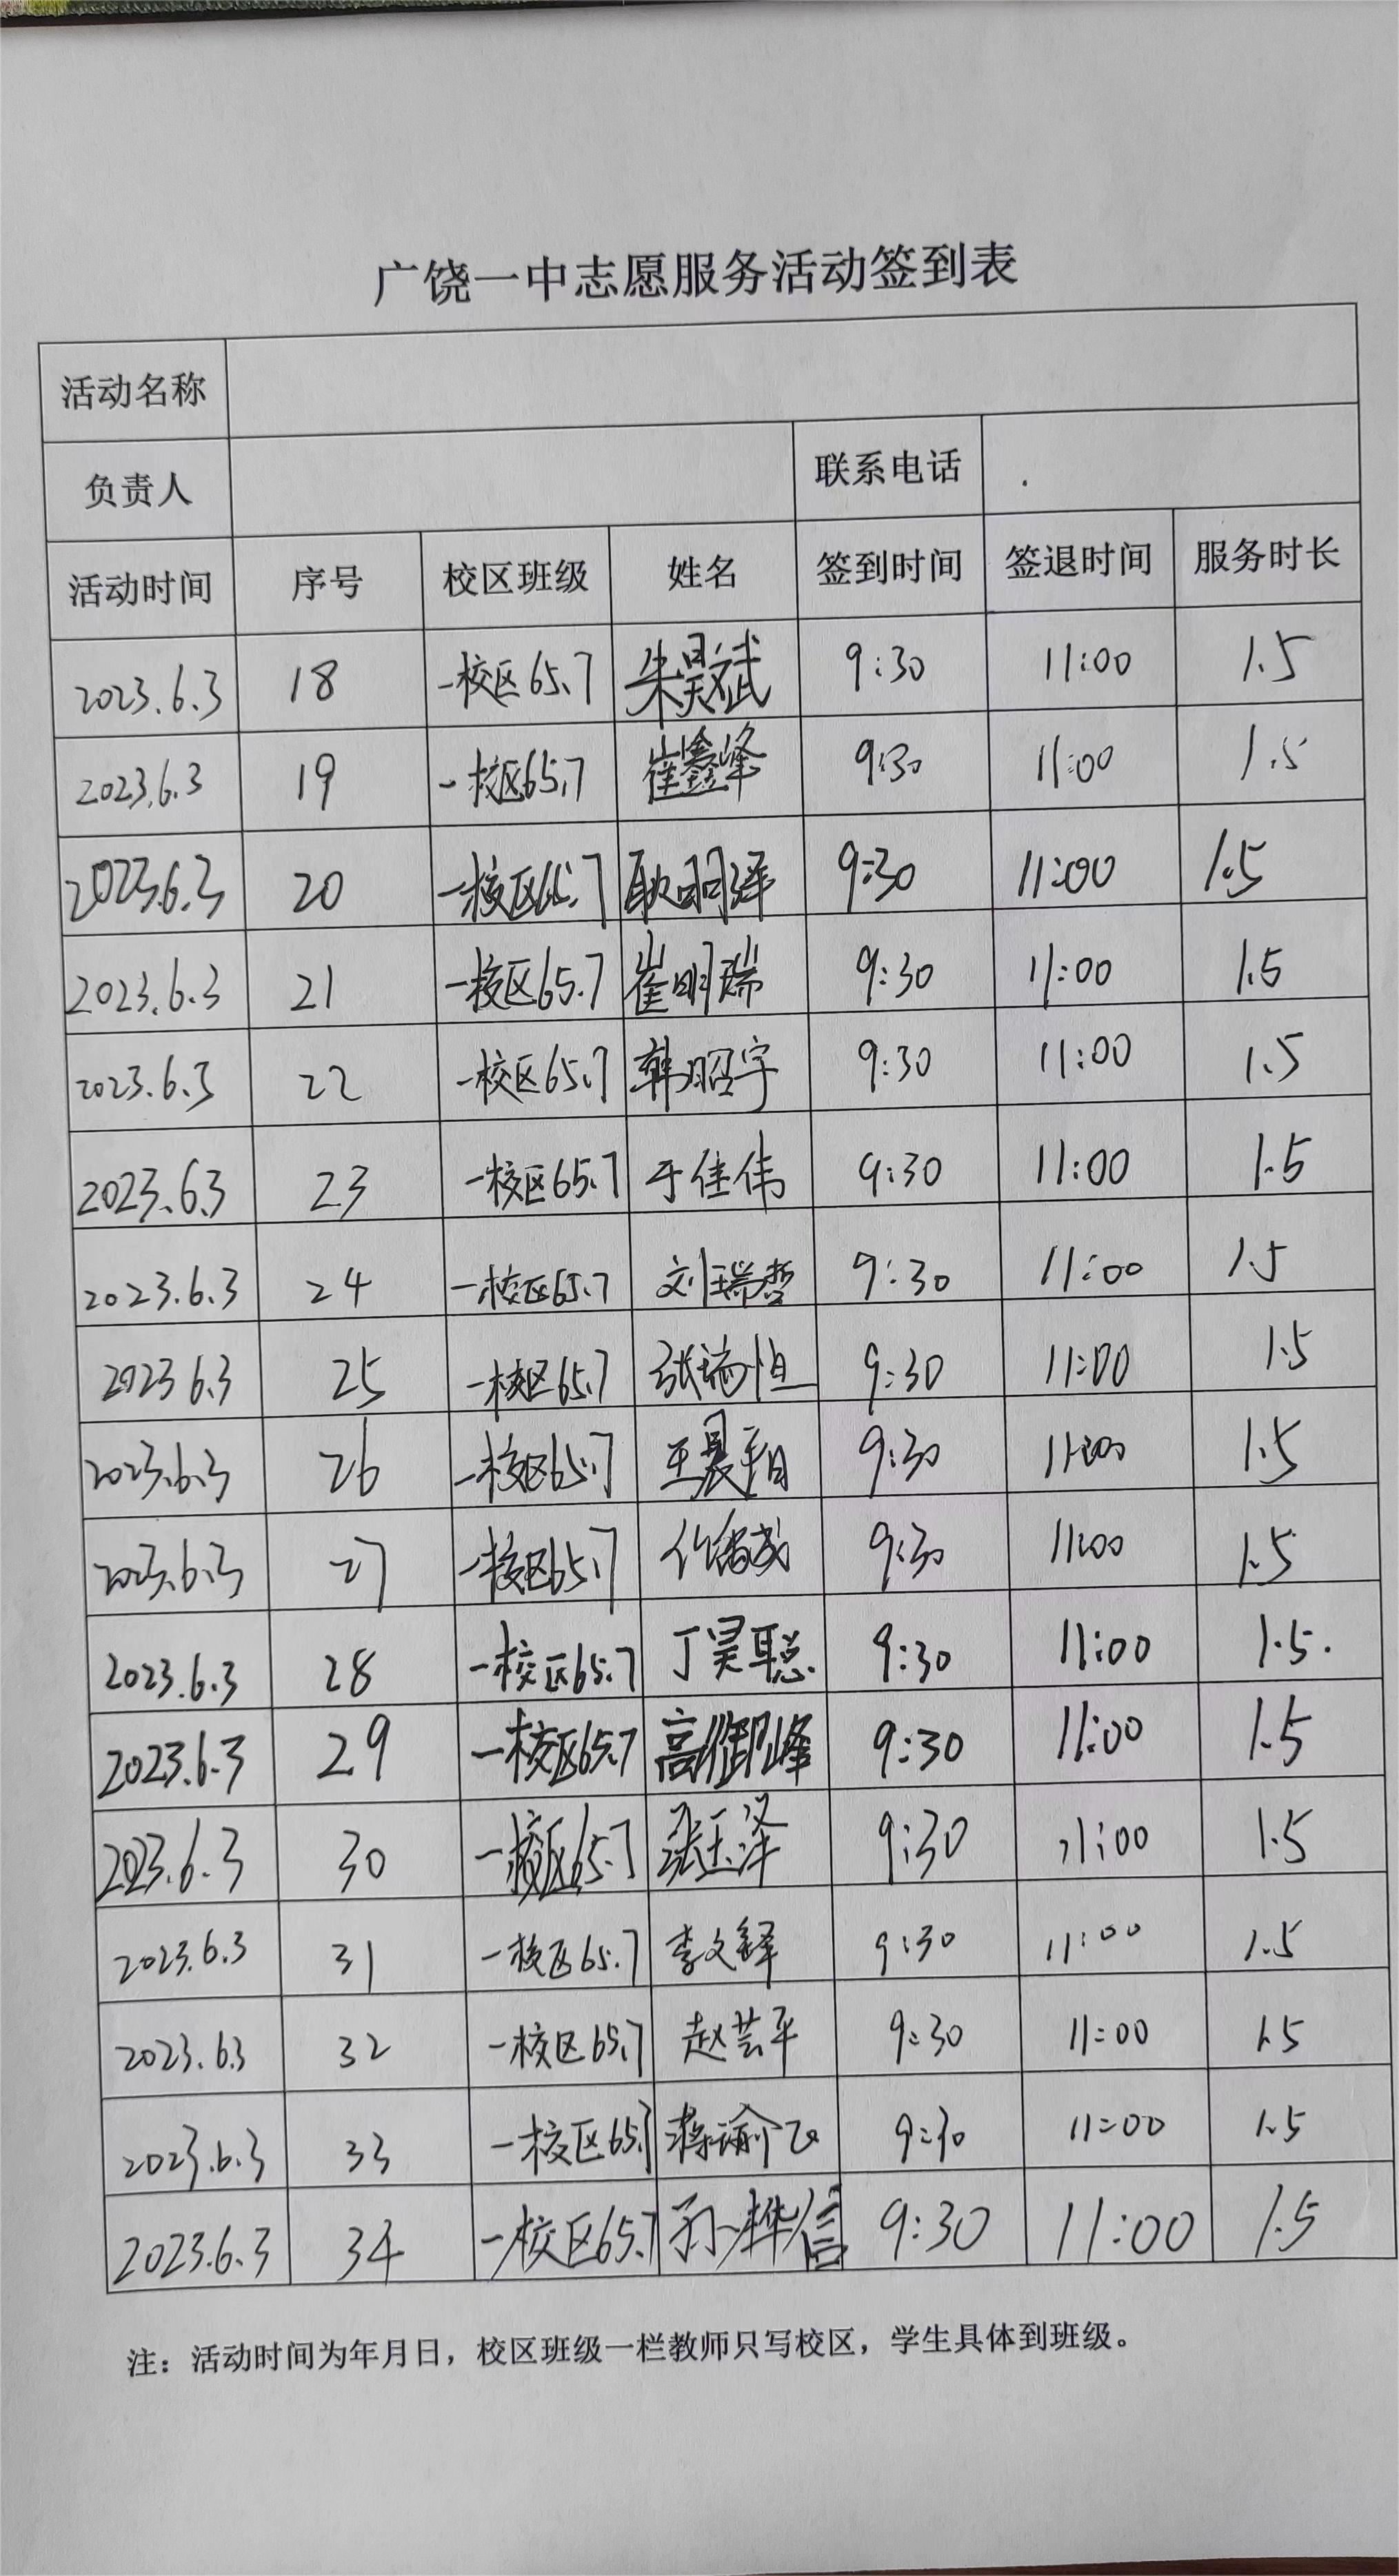 广饶一中志愿服务活动签到表
活动名称
负责人 联系电话
活动时间 序号 校区班级 姓名 签到时间 签退时间 服务时长
2023.6.3 18 一校区65.7 朱昊斌 9:30 11:00 1.5
2023.6.3 19 一校区65.7 崔鑫峰 9:30 11:00 1.5
2023.6.3 20 一校区65.7 耿明泽 9:30 11:00 1.5
2023.6.3 21 一校区65.7 崔明瑞 9:30 11:00 1.5
2023.6.3 22 一校区65.7 韩昭宇 9:30 11:00 1.5
2023.6.3 23 一校区65.7 于佳伟 9:30 11:00 1.5
2023.6.3 24 一校区65.7 刘瑞哲 9:30 11:00 1.5
2023 6.3 25 一校区65.7 张瑞恒 9:30 11:00 1.5
2023.6.3 26 一校区65.7 9:30 11:00 1.5
2023.6.3 27 一校区65.7 9:30 11:00 1.5
2023.6.3 28 一校区65.7 丁昊聪 9:30 11:00 1.5.
2023.6.3 29 一校区65.7 高御峰 9:30 11:00 1.5
2023.6.3 30 一校区65.7 张玉泽 9:30 11:00 1.5
2023.6.3 31 一校区65.7 李文铎 9:30 11:00 1.5
2023.6.3 32 一校区65.7 赵芸平 9:30 11:00 1.5
2023.6.3 33 一校区65.7 9:30 11:00 1.5
2023.6.3 34 一校区65.7 孙烨信 9:30 11:00 1.5
注：活动时间为年月日，校区班级一栏教师只写校区，学生具体到班级。